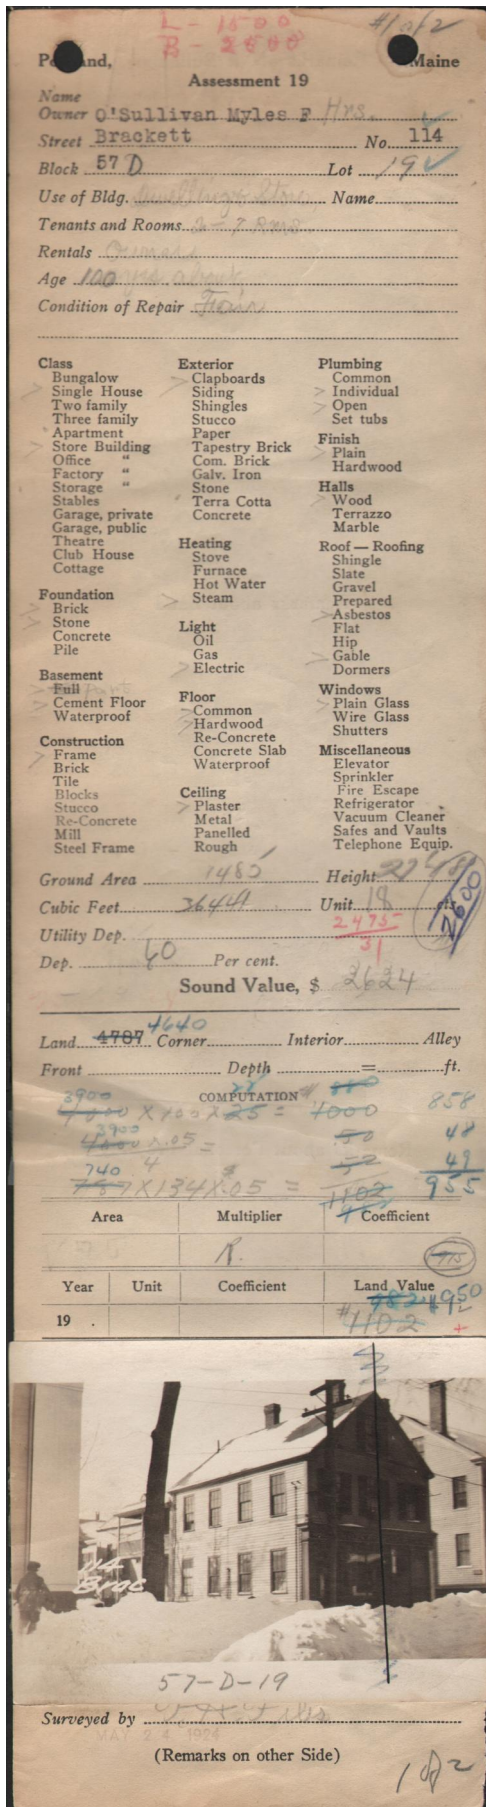 L - 1500
B - 2600
#1 of 2
Portland, Maine
Assessment 19
Name
Owner O'Sullivan Myles F Hrs.
Street Brackett No. 114
Block 57 D Lot 19
Use of Bldg. Dwelling & Store Name
Tenants and Rooms 2-7 Rms.
Rentals Owners
Age 100 yrs about
Condition of Repair Fair
Class
Bungalow
Single House
Two family
Three family
Apartment
Store Building
Office "
Factory "
Storage "
Stables
Garage, private
Garage, public
Theatre
Club House
Cottage
Foundation
Brick
Stone
Concrete
Pile
Basement
Full part
Cement Floor
Waterproof
Construction
Frame
Brick
Tile
Blocks
Stucco
Re-Concrete
Mill
Steel Frame
Exterior
Clapboards
Siding
Shingles
Stucco
Paper
Tapestry Brick
Com. Brick
Galv. Iron
Stone
Terra Cotta
Concrete
Heating
Stove
Furnace
Hot Water
Steam
Light
Oil
Gas
Electric
Floor
Common
Hardwood
Re-Concrete
Concrete Slab
Waterproof
Ceiling
Plaster
Metal
Panelled
Rough
Plumbing
Common
Individual
Open
Set tubs
Finish
Plain
Hardwood
Halls
Wood
Terrazzo
Marble
Roof — Roofing
Shingle
Slate
Gravel
Prepared
Asbestos
Flat
Hip
Gable
Dormers
Windows
Plain Glass
Wire Glass
Shutters
Miscellaneous
Elevator
Sprinkler
Fire Escape
Refrigerator
Vacuum Cleaner
Safes and Vaults
Telephone Equip.
Ground Area 1485 Height
Cubic Feet 36441 Unit 18 cts.
2600
Utility Dep. 2475
31
Dep. 60 Per cent.
Sound Value, $ 2624
4640
Land 4787 Corner Interior Alley
Front Depth = ft.
COMPUTATION
3900 22 858
4000 X 100 X 25 = 1000
3900 48
4000 X .05 = 50
740 4 52 49
787 X 134 X .05 = 1102 955
Area Multiplier Coefficient
R. 975
Year Unit Coefficient Land Value
982 $950
19 . #1102
+
114
Brac
57-D-19
Surveyed by
MAY 24 1924
(Remarks on other Side)
1 of 2